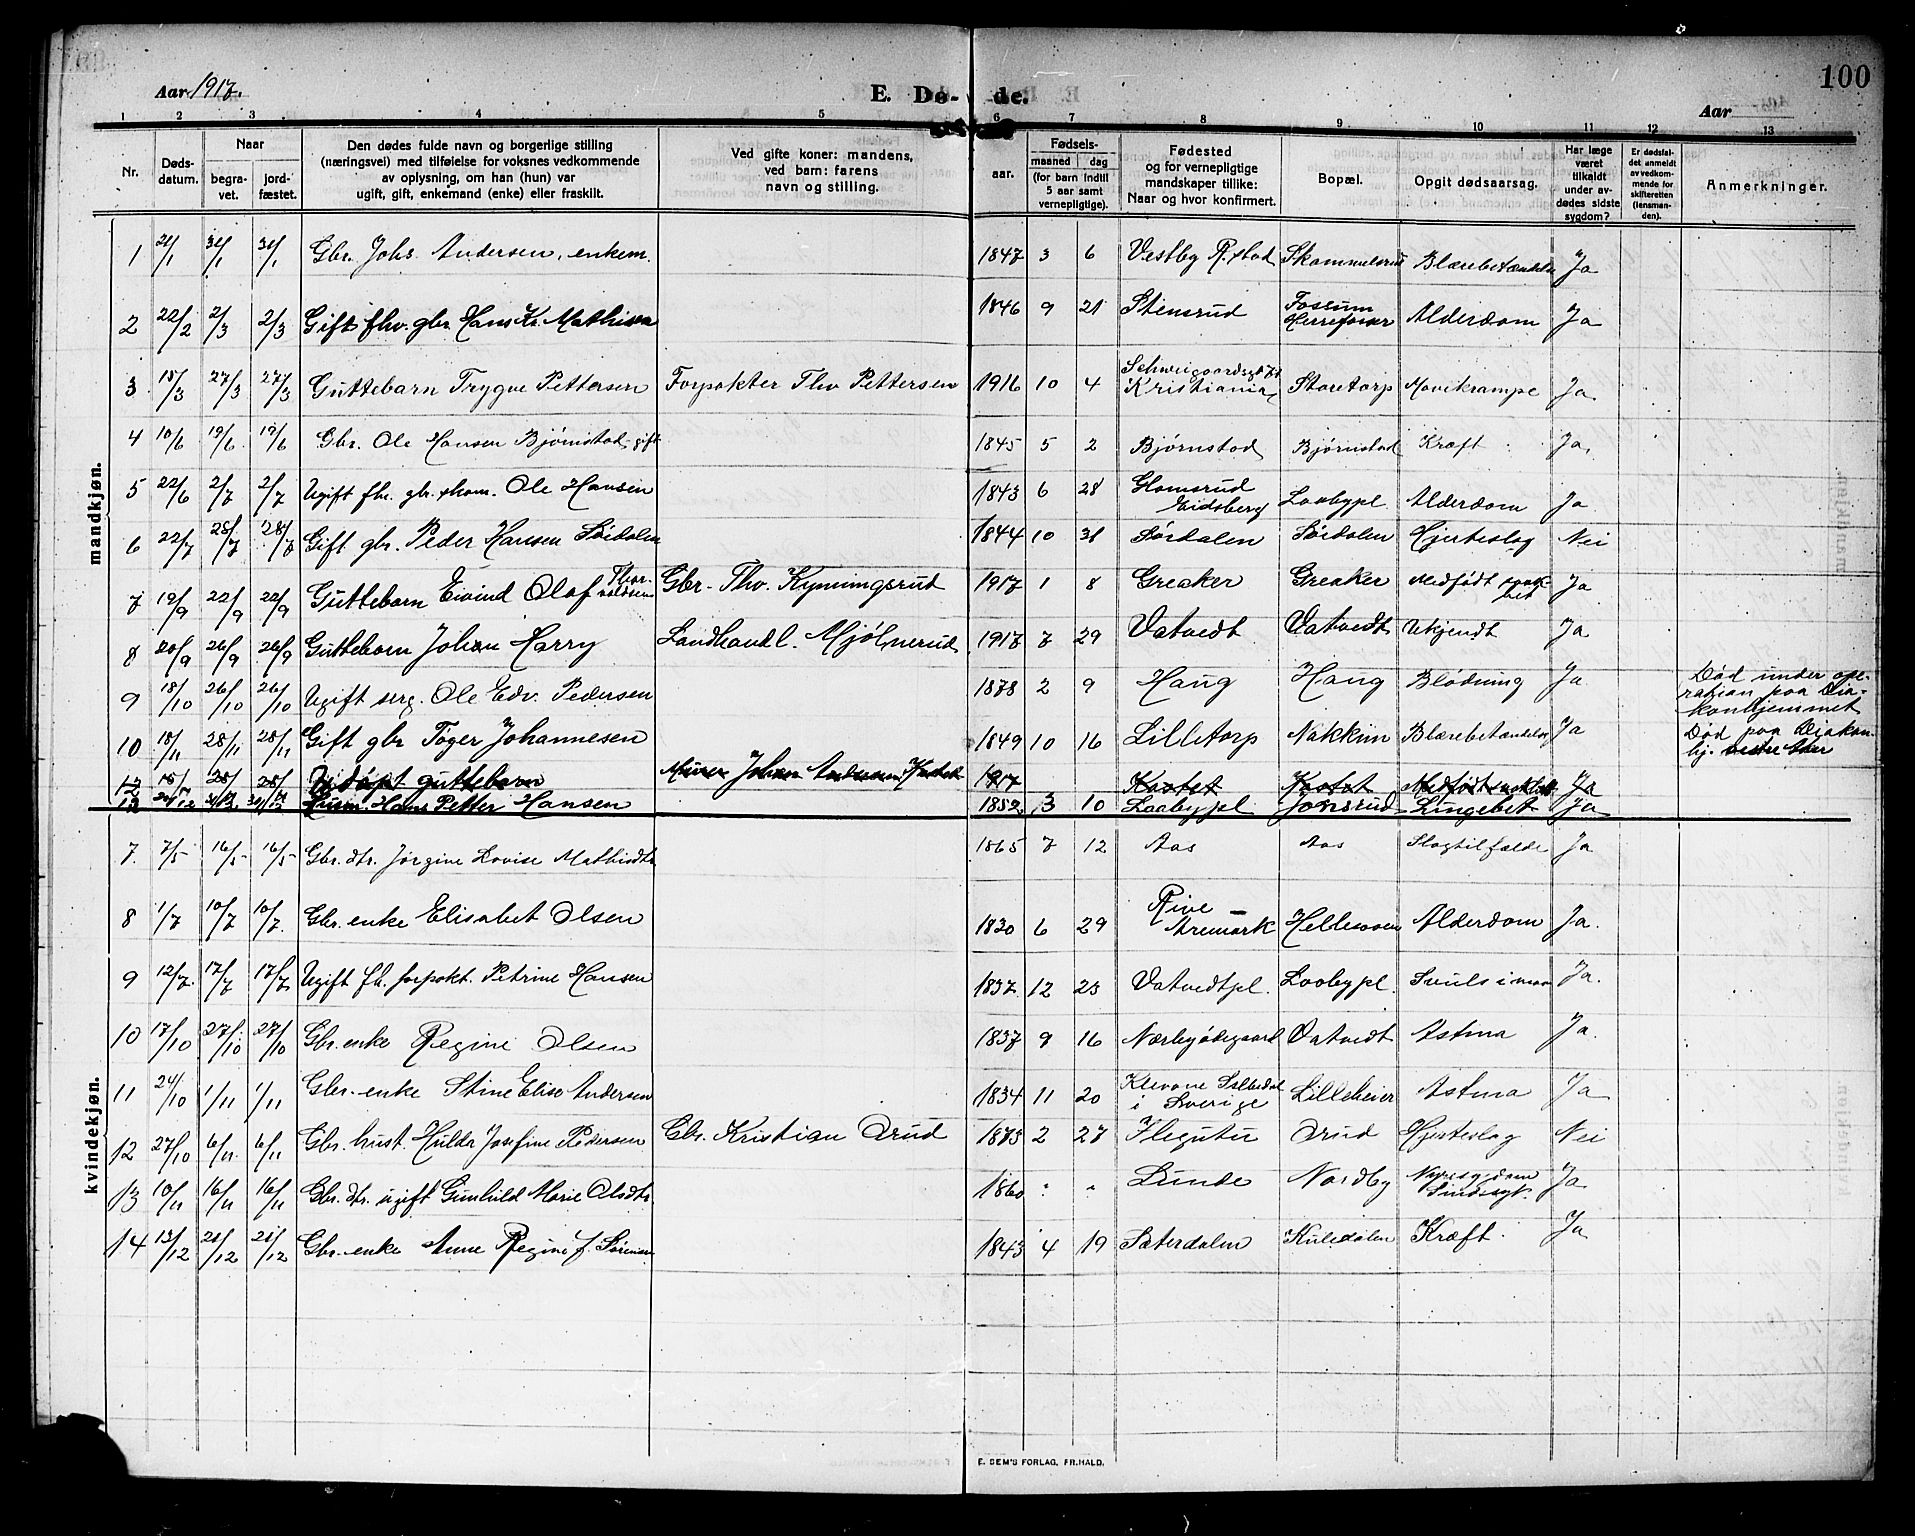 100
Aar 1917.
E. Dø- de.
Aar
1 2 3 4 5 6 7 8 9 10 11 12 13
Nr. Døds-datum. Naar begra-vet. jord-fæstet. Den dødes fulde navn og borgerlige stilling (næringsvei) med tilføielse for voksnes vedkommende av oplysning, om han (hun) var ugift, gift, enkemand (enke) eller fraskilt. Ved gifte koner: mandens, ved barn: farens navn og stilling. Fødsels- aar. maaned dag (for barn indtil 5 aar samt vernepligtige). Fødested og for vernepligtige mandskaper tillike: Naar og hvor konfirmert. Bopæl. Opgit dødsaarsag. Har læge været tilkaldt under av-dødes sidste sygdom? Er dødsfal-det anmeldt av vedkom-mende for skifteretten (lensman-den). Anmerkninger.
mandkjøn.
1 21/1 31/1 31/1 Gbr. Johs. Andersen, enkem. 1847 3 6 Vestby R.stad Skammelsrud Blærebetændelse Ja
2 22/2 2/3 2/3 Gift fhv. gbr. Hans Kr. Mathisen 1846 9 21 Stensrud Fossum Alderdom Ja
3 18/3 27/3 27/3 Guttebarn Trygve Pettersen Forpakter Thv Pettersen 1916 10 4 Schweigaardsgt Kristiania Storetorp Mavekrampe Ja
4 10/6 19/6 19/6 Gbr. Ole Hansen Bjørnstad gift 1845 5 2 Bjørnstad Bjørnstad Kræft Ja.
5 22/6 2/7 2/7 Ugift fhv. gbr. Ole Hansen 1843 6 28 Glomsrud Eidsberg Laabypl Alderdom Ja
6 22/7 28/7 28/7 Gift gbr. Peder Hansen Sørdalen 1844 10 31 Sørdalen Sørdalen Hjerteslag Nei
7 19/9 22/9 22/9 Guttebarn Eivind Olaf Thor-valdsen Gbr. Thv. Kynningsrud 1917 1 8 Greaker Greaker Medfødt svak-het Ja
8 20/9 26/9 26/9 Guttebarn Johan Harry Landhandl. Mjølnerud 1917 7 29 Vatvedt Vatvedt Ukjendt Ja
9 18/10 26/10 26/10 Ugift serg. Ole Edv. Pedersen 1878 2 9 Haug Haug Blødning Ja Død under ope-ration paa Dia-konhjemmet
10 18/11 28/11 28/11 Gift gbr Tøger Johannesen 1849 10 16 Lilletorp Nakkim Blærebetændelse Ja Død paa Diakon-hj.
12 18/ 28/ 28/ Udøpt guttebarn Murer Johan Andersen, Kastet 1917 Kastet Kastet Medfødt svakhet Ja
Hans Petter Hansen 1852 3 10 Laabypl Jonsrud Lungebet. Ja
kvindekjøn.
7. 7/5 16/5 16/5 Gbr. dtr. Jørgine Lovise Mathisdtr 1865 7 12 Aas Aas Slagtilfælde Ja
8 1/7 10/7 10/7. Gbr. enke Elisabet Olsen 1830 6 29 Rive Aremark Helleosen Alderdom Ja.
9 12/7. 17/7 17/7 Ugift fh. forpakt. Petrine Hansen 1837. 12 23 Vatvedtpl. Laabypl. Svuls i mave Ja.
10 17/10 27/10 27/10 Gbr. enke Regine Olsen 1837 9 16 Nærbyødegaard Vatvedt Astma Ja.
11 24/10 1/11 1/11 Gbr. enke Stine Elise Andersen 1834 11 20 Klevane i Sverige Lilleheier Astma Ja
12 27/10 6/11 6/11 Gbr. hust. Hulda Josefine Pedersen Gbr. Kristian Orud 1873 2 27 Flegutu Orud Hjerteslag Nei
13 10/11 16/11 16/11 Gbr. dtr. ugift Gunhild Marie Olsdtr 1860 " " Lunde Nordby Nyresygdom Sindssyk. Ja
14 13/12 21/12 21/12 Gbr. enke Anne Regine f. Sørensen 1843 4 19 Sæterdalen Kuledalen Kræft. Ja
E. SEM'S FORLAG, FR.HALD.